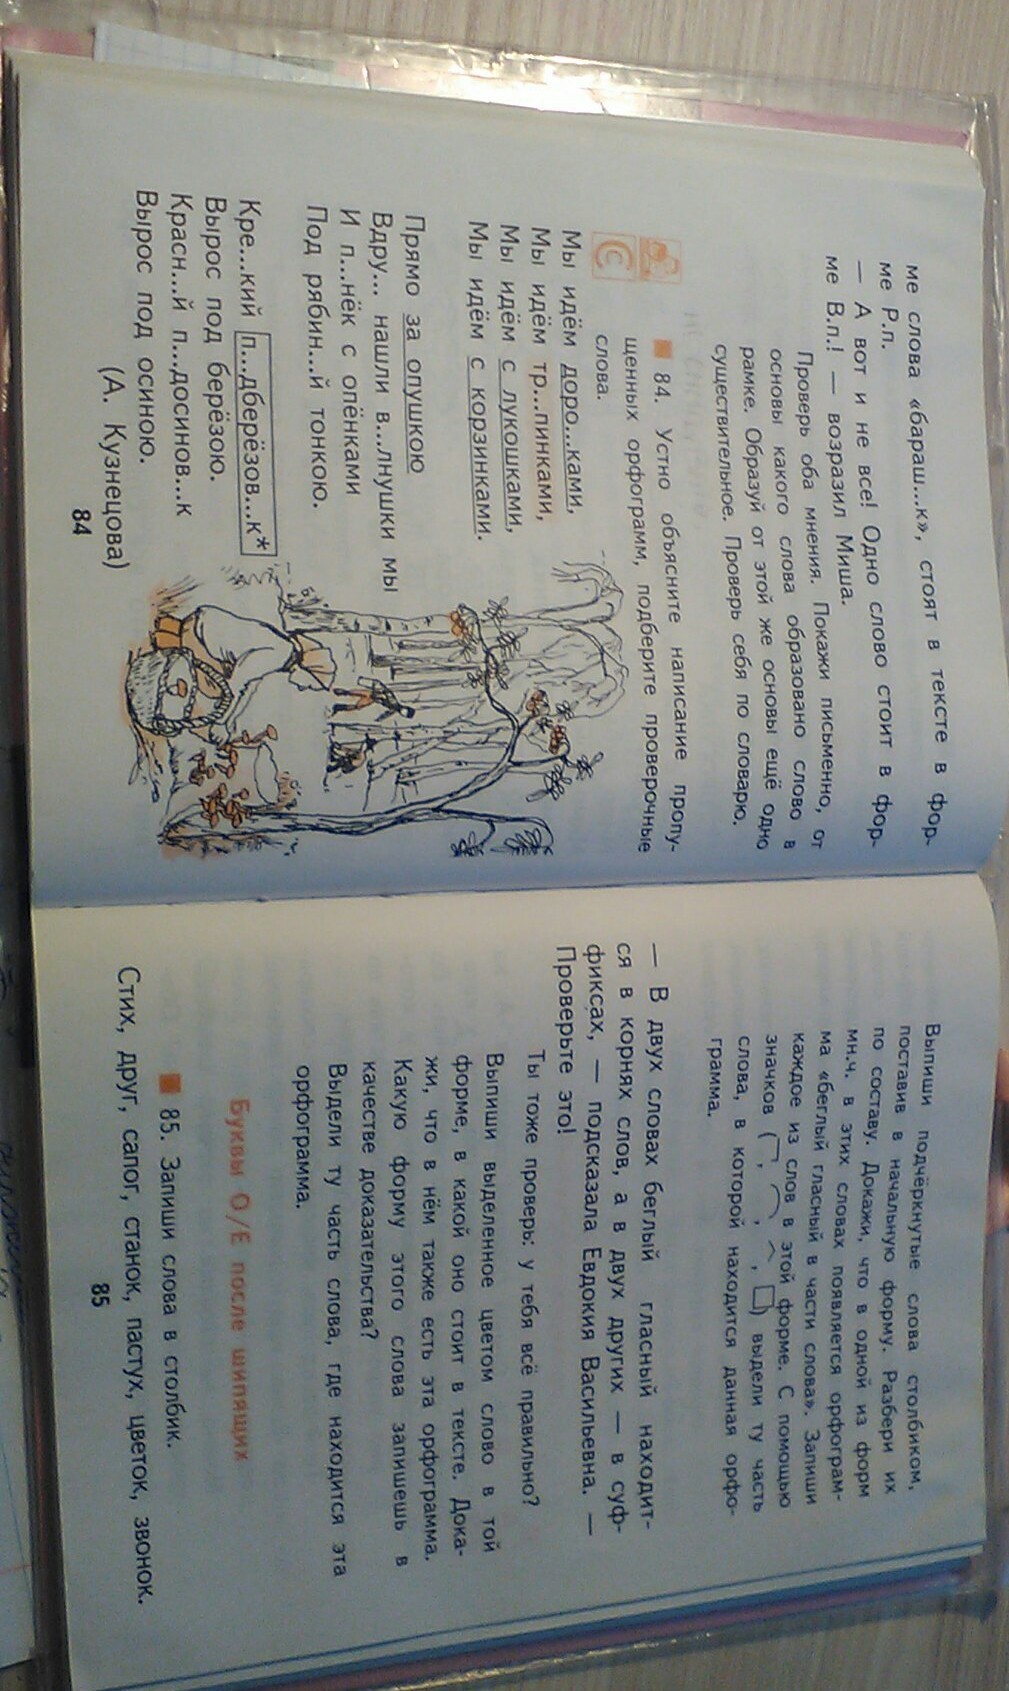 ме слова «бараш...к», стоят в тексте в фор-
ме Р.п.
— А вот и не все! Одно слово стоит в фор-
ме В.п.! — возразил Миша.
Проверь оба мнения. Покажи письменно, от
основы какого слова образовано слово в
рамке. Образуй от этой же основы ещё одно
существительное. Проверь себя по словарю.
С
84. Устно объясните написание пропу-
щенных орфограмм, подберите проверочные
слова.
Мы идём доро...ками,
Мы идём тр...пинками,
Мы идём с лукошками,
Мы идём с корзинками.
Прямо за опушкою
Вдру... нашли в...лнушки мы
И п...нёк с опёнками
Под рябин...й тонкою.
Кре...кий п...дберёзов...к*
Вырос под берёзою.
Красн...й п...досинов...к
Вырос под осиною.
(А. Кузнецова)
84
Выпиши подчёркнутые слова столбиком,
поставив в начальную форму. Разбери их
по составу. Докажи, что в одной из форм
мн.ч. в этих словах появляется орфограм-
ма «беглый гласный в части слова». Запиши
каждое из слов в этой форме. С помощью
значков (¬, ⌒, ^, □) выдели ту часть
слова, в которой находится данная орфо-
грамма.
— В двух словах беглый гласный находит-
ся в корнях слов, а в двух других — в суф-
фиксах, — подсказала Евдокия Васильевна. —
Проверьте это!
Ты тоже проверь: у тебя всё правильно?
Выпиши выделенное цветом слово в той
форме, в какой оно стоит в тексте. Дока-
жи, что в нём также есть эта орфограмма.
Какую форму этого слова запишешь в
качестве доказательства?
Выдели ту часть слова, где находится эта
орфограмма.
Буквы О/Е после шипящих
85. Запиши слова в столбик.
Стих, друг, сапог, станок, пастух, цветок, звонок.
85